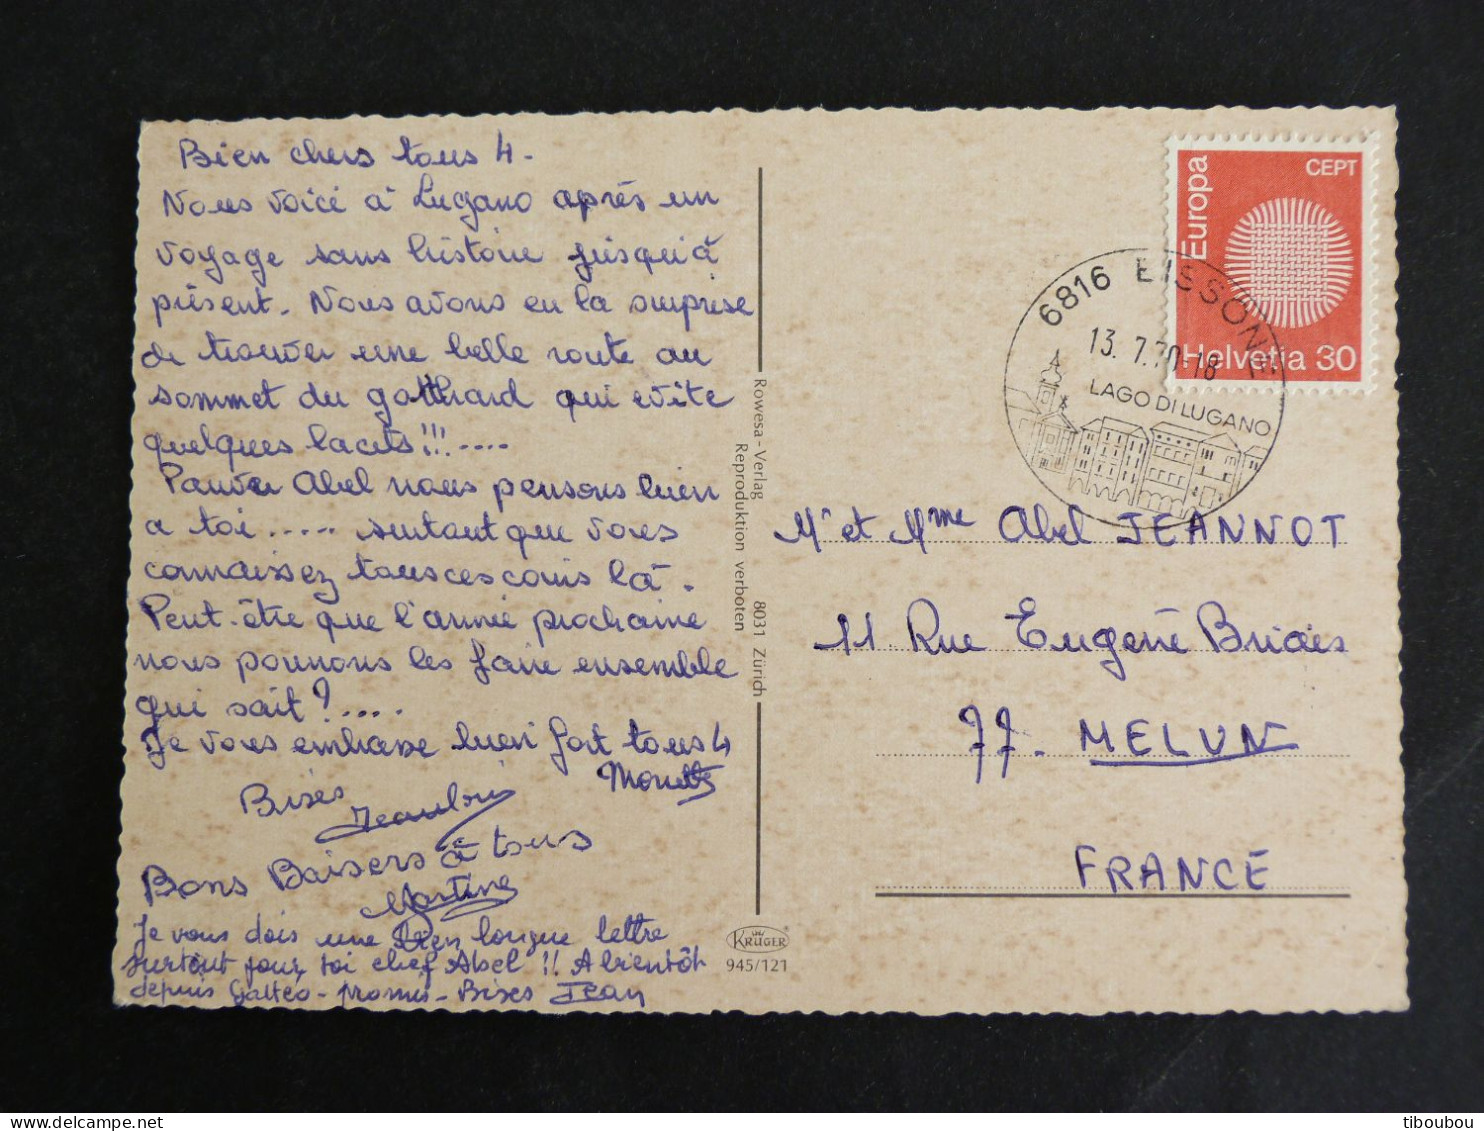 Bien chers tous 4.
Nous voici à Lugano après un
voyage sans histoire jusqu'à
présent. Nous avons eu la surprise
de trouver une belle route au
sommet du gotthard qui evite
quelques lacets!!!....
Pauvre Abel nous pensons bien
a toi..... surtout que vous
connaissez tous ces coins là.
Peut-être que l'année prochaine
nous pourrons les faire ensemble
qui sait?....
Je vous embrasse bien fort tous 4
Bises
Bons Baisers à tous
Martine
Je vous dois une Bien longue lettre
surtout pour toi chef Abel !! A bientôt
depuis - promis - Bises Jean
Rowesa - Verlag 8031 Zürich
Reproduktion verboten
KRÜGER
945/121
Europa
CEPT
Helvetia 30
6816 BISSONE
13.7.70-18
LAGO DI LUGANO
Mr et Mme Abel JEANNOT
11. Rue Eugène Briais
77- MELUN
FRANCE
tiboubou